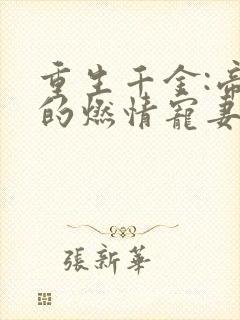 重生千金:帝
的燃情寵妻
張新華